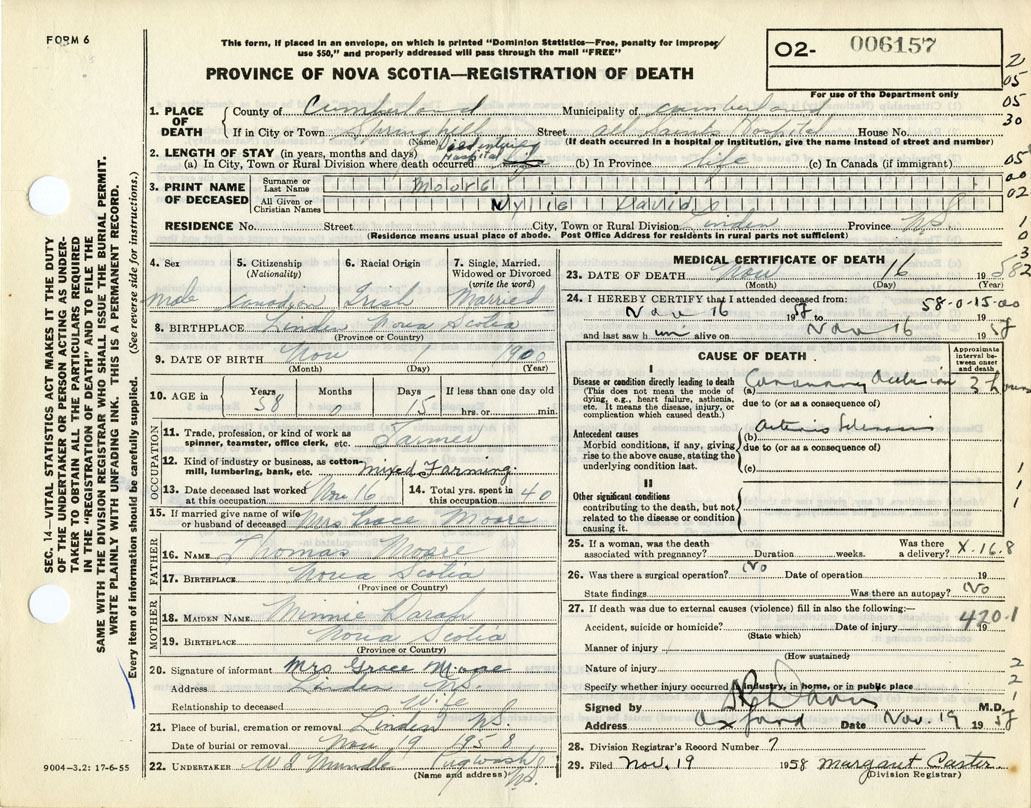 FORM 6
This form, if placed in an envelope, on which is printed "Dominion Statistics—Free, penalty for improper
use $50," and properly addressed will pass through the mail "FREE"
PROVINCE OF NOVA SCOTIA—REGISTRATION OF DEATH
O2- 006157
For use of the Department only
2
05
05
30
05
00
02
1
0
3
SEC. 14—VITAL STATISTICS ACT MAKES IT THE DUTY
OF THE UNDERTAKER OR PERSON ACTING AS UNDER-
TAKER TO OBTAIN ALL THE PARTICULARS REQUIRED
IN THE "REGISTRATION OF DEATH" AND TO FILE THE
SAME WITH THE DIVISION REGISTRAR WHO SHALL ISSUE THE BURIAL PERMIT.
WRITE PLAINLY WITH UNFADING INK. THIS IS A PERMANENT RECORD.
Every item of information should be carefully supplied. (See reverse side for instructions.)
1. PLACE OF DEATH County of Cumberland Municipality of Cumberland
If in City or Town Springhill Street All Saints Hospital House No.
(Name) (If death occurred in a hospital or institution, give the name instead of street and number)
2. LENGTH OF STAY (in years, months and days)
(a) In City, Town or Rural Division where death occurred Hospital (b) In Province life (c) In Canada (if immigrant)
3. PRINT NAME OF DECEASED Surname or Last Name Moore
All Given or Christian Names Wyllie David
RESIDENCE No. Street City, Town or Rural Division Linden Province N.S.
(Residence means usual place of abode. Post Office Address for residents in rural parts not sufficient)
4. Sex Male
5. Citizenship (Nationality) Canadian
6. Racial Origin Irish
7. Single, Married, Widowed or Divorced (write the word) Married
8. BIRTHPLACE Linden Nova Scotia
(Province or Country)
9. DATE OF BIRTH Nov 1 1900
(Month) (Day) (Year)
10. AGE in Years 58 Months 0 Days 15 If less than one day old hrs. or min.
OCCUPATION
11. Trade, profession, or kind of work as spinner, teamster, office clerk, etc. Farmer
12. Kind of industry or business, as cotton-mill, lumbering, bank, etc. mixed Farming
13. Date deceased last worked at this occupation Nov 16
14. Total yrs. spent in this occupation 40
15. If married give name of wife or husband of deceased Mrs Grace Moore
FATHER
16. NAME Thomas Moore
17. BIRTHPLACE Nova Scotia
(Province or Country)
MOTHER
18. MAIDEN NAME Minnie
19. BIRTHPLACE Nova Scotia
(Province or Country)
20. Signature of informant Mrs Grace Moore
Address Linden N.S.
Relationship to deceased Wife
21. Place of burial, cremation or removal Linden N.S.
Date of burial or removal Nov 19 1958
22. UNDERTAKER Mundle Pugwash N.S.
(Name and address)
9004—3.2: 17-6-55
MEDICAL CERTIFICATE OF DEATH
23. DATE OF DEATH Nov 16 1958
(Month) (Day) (Year)
24. I HEREBY CERTIFY that I attended deceased from: 58-0-15-00
Nov 16 1958 to 19
and last saw him alive on Nov 16 1958
CAUSE OF DEATH
Approximate interval between onset and death
I
Disease or condition directly leading to death (a) Coronary Occlusion 3 hours
(This does not mean the mode of dying, e.g., heart failure, asthenia, etc. It means the disease, injury, or complication which caused death.)
due to (or as a consequence of)
Antecedent causes (b) Arterio Sclerosis
Morbid conditions, if any, giving rise to the above cause, stating the underlying condition last.
due to (or as a consequence of)
(c)
II
Other significant conditions
contributing to the death, but not related to the disease or condition causing it.
1
1
1
25. If a woman, was the death associated with pregnancy? Duration weeks. Was there a delivery? X.16.8
26. Was there a surgical operation? No Date of operation 19
State findings Was there an autopsy? No
27. If death was due to external causes (violence) fill in also the following:— 420.1
Accident, suicide or homicide? Date of injury 19
(State which)
Manner of injury
(How sustained)
Nature of injury
Specify whether injury occurred in industry, in home, or in public place
2
2
1
Signed by M.D.
Address Oxford Date Nov. 19 1958
28. Division Registrar's Record Number 7
29. Filed Nov. 19 1958 Margaret Carter
(Division Registrar)